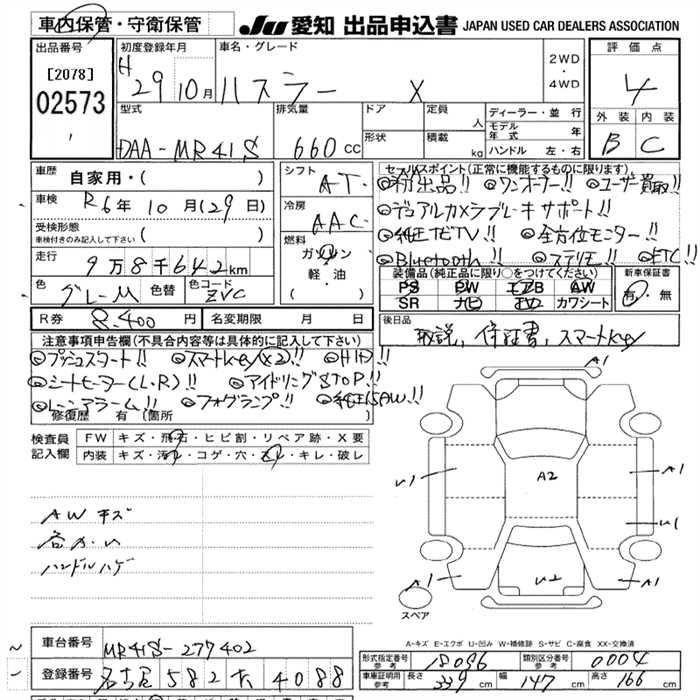 車内保管・守衛保管 JU 愛知 出品申込書 JAPAN USED CAR DEALERS ASSOCIATION
出品番号 初度登録年月 車名・グレード 評価点
[2078] H 29年10月 ハスラー X 2WD・4WD 4
02573
型式 排気量 ドア 定員 人 ディーラー・並行 外装 内装
モデル年式 年
DAA-MR41S 660cc 形状 積載 kg ハンドル 左・右 B C
車歴 自家用・( ) シフト AT セールスポイント(正常に機能するものに限ります)
◎初出品!! ◎ワンオーナー!! ◎ユーザー買取!!
車検 R6年10月(29日) 冷房 AAC ◎デュアルカメラブレーキサポート!!
受検形態 車検付きのみ記入して下さい ( ) ◎純正ナビTV!! ◎全方位モニター!!
走行 9万8千642km 燃料 ガソリン 軽・油 ( ) ◎Bluetooth!! ◎ステリモ!! ◎ETC!!
装備品(純正品に限り○をつけてください) 新車保証書
色 グレーM 色替 色コード ZVC PS PW エアB AW
SR ナビ TV カワシート 有・無
R券 8,400円 名変期限 月 日 後日品 取説、保証書、スマートkey
注意事項申告欄(不具合内容等は具体的に記入して下さい)
◎プッシュスタート!! ◎スマートkey(×2)!! ◎HID!!
◎シートヒーター(L・R)!! ◎アイドリングSTOP!!
◎レーンアラーム!! ◎フォグランプ!! ◎純正15AW!!
修復歴 有(箇所 )
検査員記入欄 FW キズ・飛石・ヒビ割・リペア跡・X要
内装 キズ・汚れ・コゲ・穴・スレ・キレ・破レ
A1
U1 A2 A1
U1
AWキズ
ハンドルハゲ
A1 U2 A1
スペア
A-キズ E-エクボ U-凹み W-補修跡 S-サビ C-腐食 XX-交換済
車台番号 MR41S-277402
形式指定番号 参考 18096 類別区分番号 参考 0004
登録番号 名古屋 582 4088
車車証明用 参考 長さ 339cm 幅 147cm 高さ 166cm